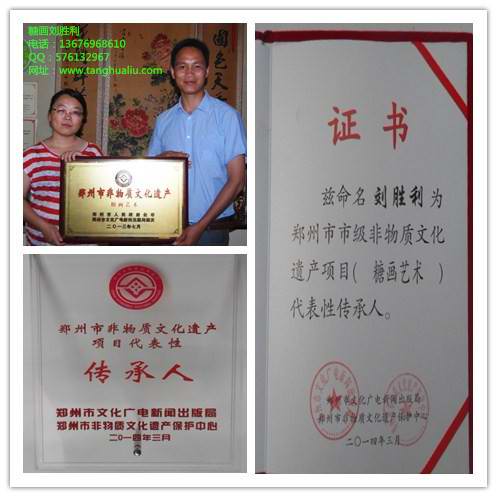 糖画刘胜利
电话：13676968610
QQ：576132967
网址：www.tanghualiu.com
國色天
郑州市非物质文化遗产
糖画艺术
郑州市人民政府公布
郑州市文化广电新闻出版局颁发
二〇一三年七月
郑州市非物质文化遗产
项目代表性
传承人
郑州市文化广电新闻出版局
郑州市非物质文化遗产保护中心
二〇一四年三月
证书
兹命名刘胜利为
郑州市市级非物质文化
遗产项目( 糖画艺术 )
代表性传承人。
郑州市文化广电新闻出版局
郑州市非物质文化遗产保护中心
二〇一四年三月